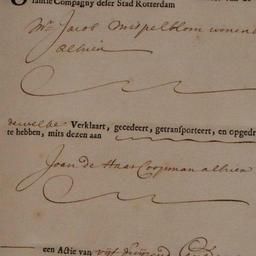 rantie Compagny deser Stad Rotterdam
Mr. Jacob Mispelblom wonend
alhier
dewelke Verklaart, gecedeert, getransporteert, en opgedr
te hebben, mits dezen aan
Joan de Haas Coopman alhier
een Actie van vijf duysend